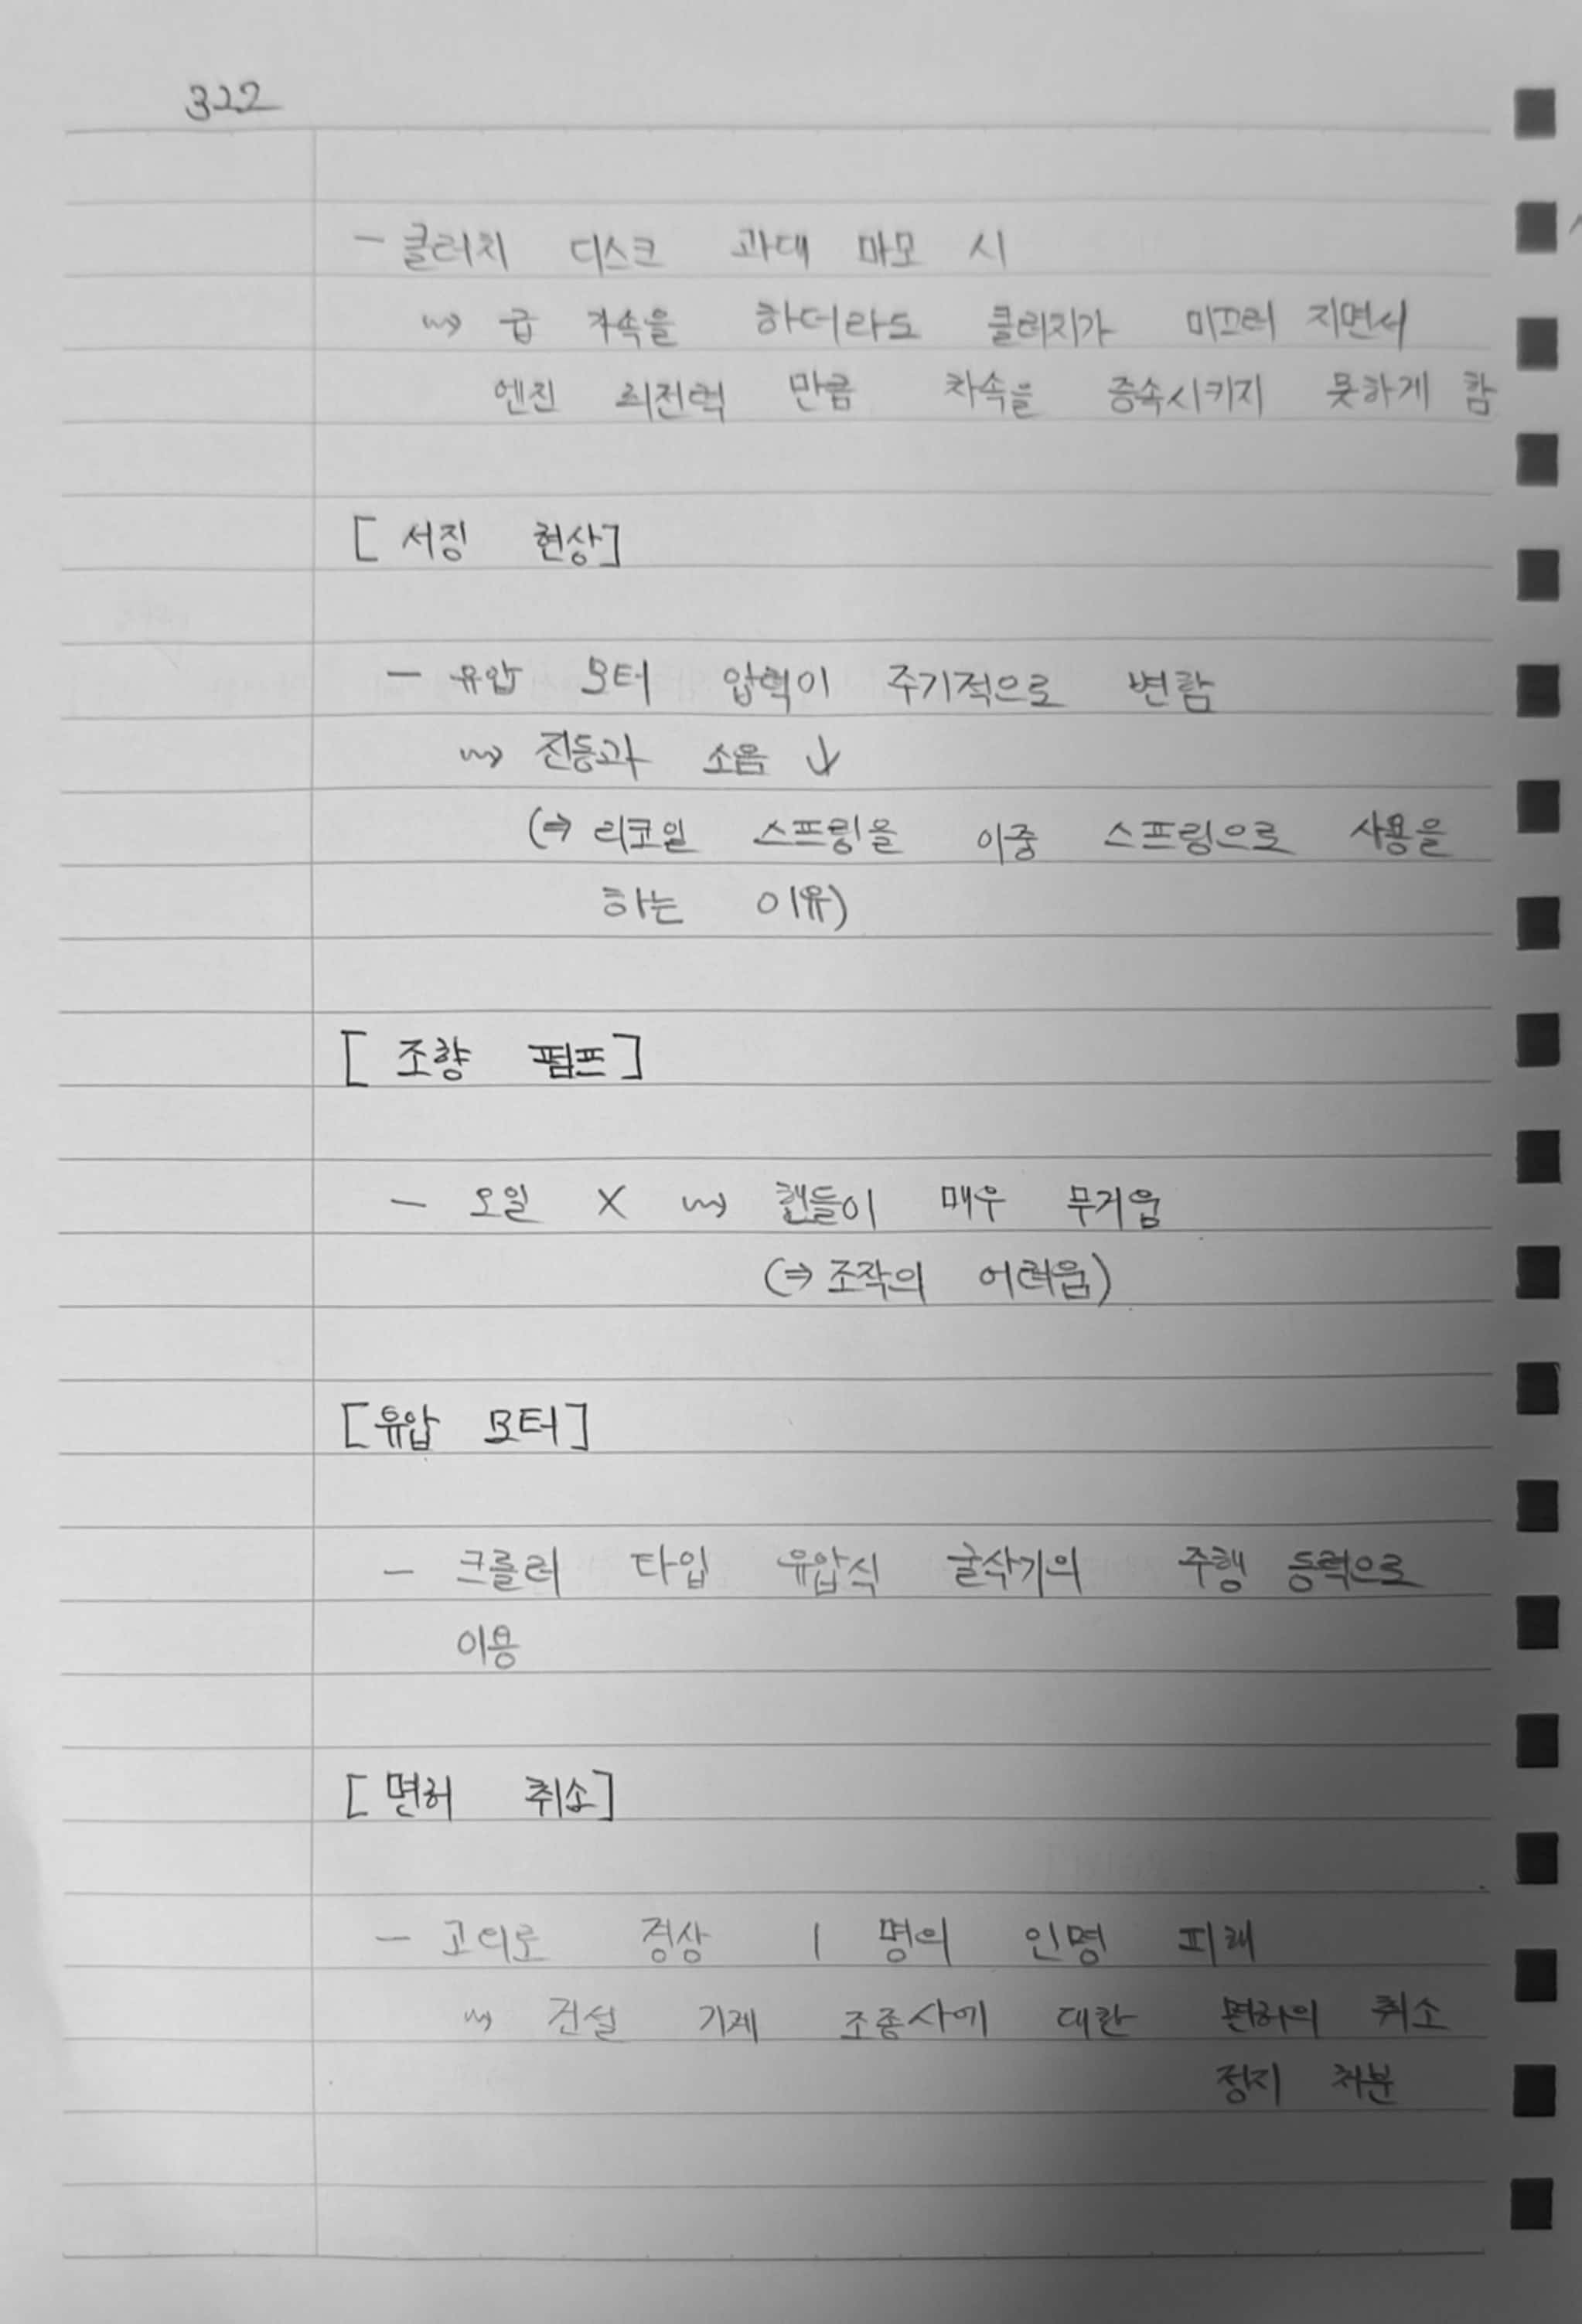 322
- 클러치 디스크 과대 마모 시
⇝ 급 가속을 하더라도 클러치가 미끄러 지면서
엔진 회전력 만큼 차속을 증속시키지 못하게 함
[ 서징 현상]
- 유압 모터 압력이 주기적으로 변함
⇝ 진동과 소음 ↓
(⇒ 리코일 스프링을 이중 스프링으로 사용을
하는 이유)
[ 조향 펌프 ]
- 오일 X ⇝ 핸들이 매우 무거움
(⇒ 조작의 어려움)
[유압 모터]
- 크롤러 타입 유압식 굴삭기의 주행 동력으로
이용
[ 면허 취소]
- 고의로 경상 1 명의 인명 피해
⇝ 건설 기계 조종사에 대한 면허의 취소
정지 처분